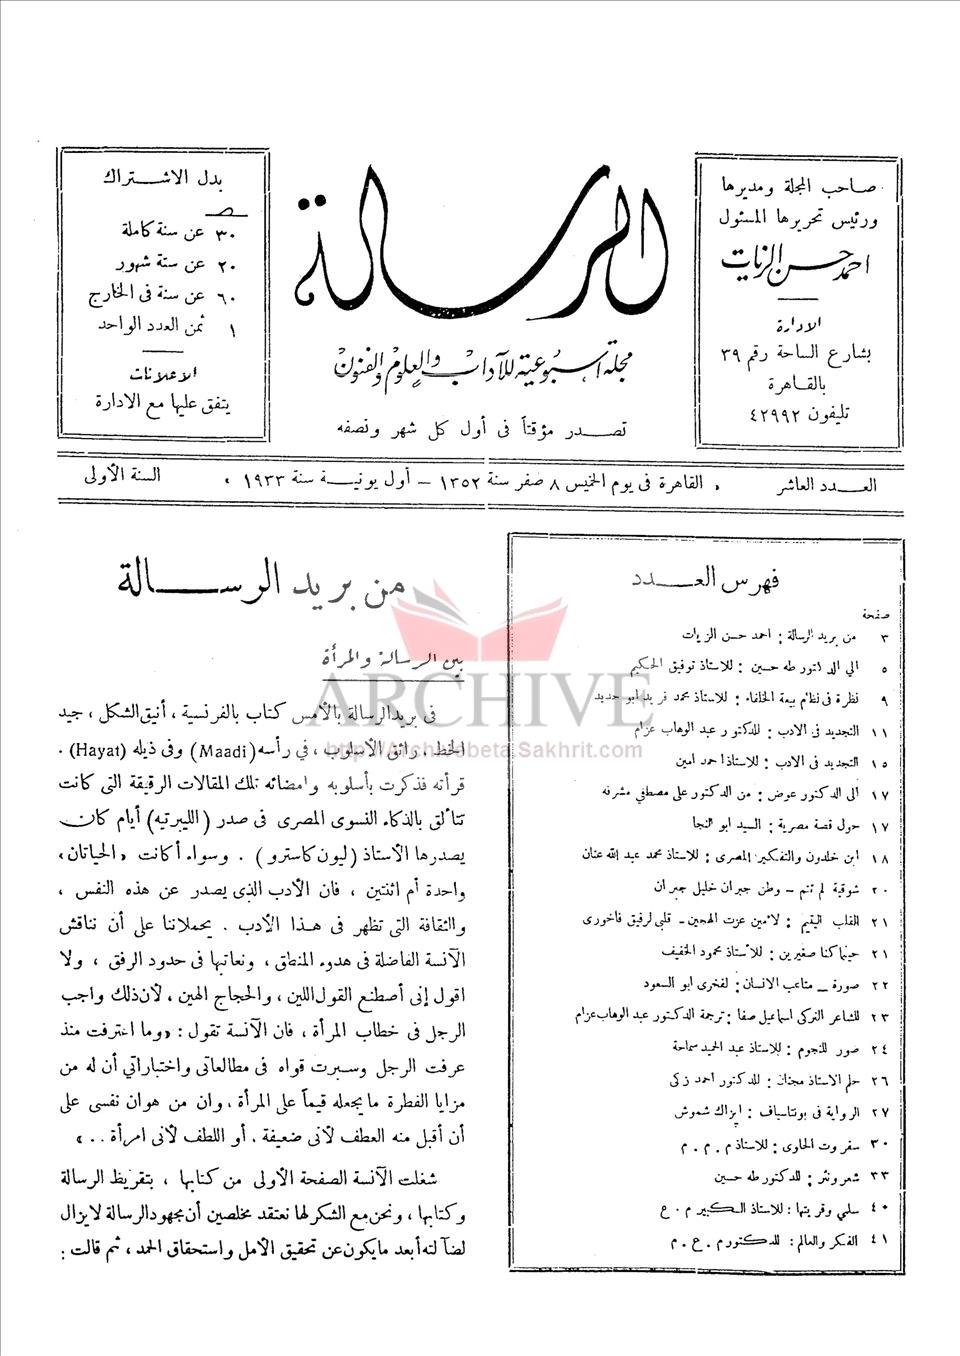 صاحب المجلة ومديرها
ورئيس تحريرها المسئول
احمد حسن الزيات
الادارة
بشارع الساحة رقم ٣٩
بالقاهرة
تليفون ٤٢٩٩٢
الرسالة
مجلة اسبوعية للآداب والعلوم والفنون
تصدر مؤقتاً فى أول كل شهر ونصفه
بدل الاشتراك
٣٠ عن سنة كاملة
٢٠ عن ستة شهور
٦٠ عن سنة فى الخارج
١ ثمن العدد الواحد
الاعلانات
يتفق عليها مع الادارة
العدد العاشر
« القاهرة فى يوم الخميس ٨ صفر سنة ١٣٥٢ – أول يونية سنة ١٩٣٣ »
السنة الأولى
فهرس العدد
صفحة
٣ من بريد الرسالة : احمد حسن الزيات
٥ الى الدكتور طه حسين : للاستاذ توفيق الحكيم
٩ نظرة فى نظام بيعة الخلفاء : للاستاذ محمد فريد أبو حديد
١١ التجديد فى الادب : للدكتور عبد الوهاب عزام
١٥ التجديد فى الادب : للاستاذ احمد امين
١٧ الى الدكتور عوض : من الدكتور على مصطفي مشرفه
١٧ حول قصة مصرية : السيد ابو النجا
١٨ ابن خلدون والتفكير المصرى : للاستاذ محمد عبد الله عنان
٢٠ شوقية لم تتم – وطن جبران خليل جبران
٢١ القلب اليتيم : لامين عزت الهجين – قلبي لرفيق فاخورى
٢١ حينما كنا صغيرين : للاستاذ محمود الخفيف
٢٢ صورة – متاعب الانسان : لفخرى ابو السعود
٢٣ للشاعر التركى اسماعيل صفا : ترجمة الدكتور عبد الوهاب عزام
٢٤ صور للنجوم : للاستاذ عبد الحميد سماحة
٢٦ حلم الاستاذ مجنان : للدكتور احمد زكى
٢٧ الرواية فى بونتاسياف : ايزاك شموش
٣٠ سفروت الحاوى : للاستاذ م . م . م
٣٣ شعر ونثر : للدكتور طه حسين
٤٠ سلمي وقريتها : للاستاذ الكبير م . ع
٤١ الفكر والعالم : للدكتور م . ع . م
من بريد الرسالة
بين الرسالة والمرأة
فى بريد الرسالة بالأمس كتاب بالفرنسية ، أنيق الشكل ، جيد
الخط ، رائق الأسلوب ، فى رأسه (Maadi) وفى ذيله (Hayat) .
قرأته فذكرت بأسلوبه وامضائه تلك المقالات الرقيقة التى كانت
تتألق بالذكاء النسوى المصرى فى صدر (الليبرتيه) أيام كان
يصدرها الأستاذ (ليون كاسترو) . وسواء أكانت « الحياتان »
واحدة أم اثنتين ، فان الأدب الذى يصدر عن هذه النفس ،
والثقافة التى تظهر فى هذا الأدب . يحملاننا على أن نناقش
الآنسة الفاضلة فى هدوء المنطق ، ونعاتبها فى حدود الرفق ، ولا
اقول إنى أصطنع القول اللين ، والحجاج الهين ، لأن ذلك واجب
الرجل فى خطاب المرأة ، فان الآنسة تقول : « وما اعترفت منذ
عرفت الرجل وسبرت قواه فى مطالعاتى واختباراتي أن له من
مزايا الفطرة ما يجعله قيماً على المرأة ، وان من هوان نفسى على
أن أقبل منه العطف لأنى ضعيفة ، أو اللطف لأنى امرأة .. »
شغلت الآنسة الصفحة الأولى من كتابها ، بتقريظ الرسالة
وكتابها ، ونحن مع الشكر لها نعتقد مخلصين أن مجهود الرسالة لا يزال
لضآلته أبعد ما يكون عن تحقيق الأمل واستحقاق الحمد ، ثم قالت :
ARCHIVE
http://Archivebeta.Sakhrit.com